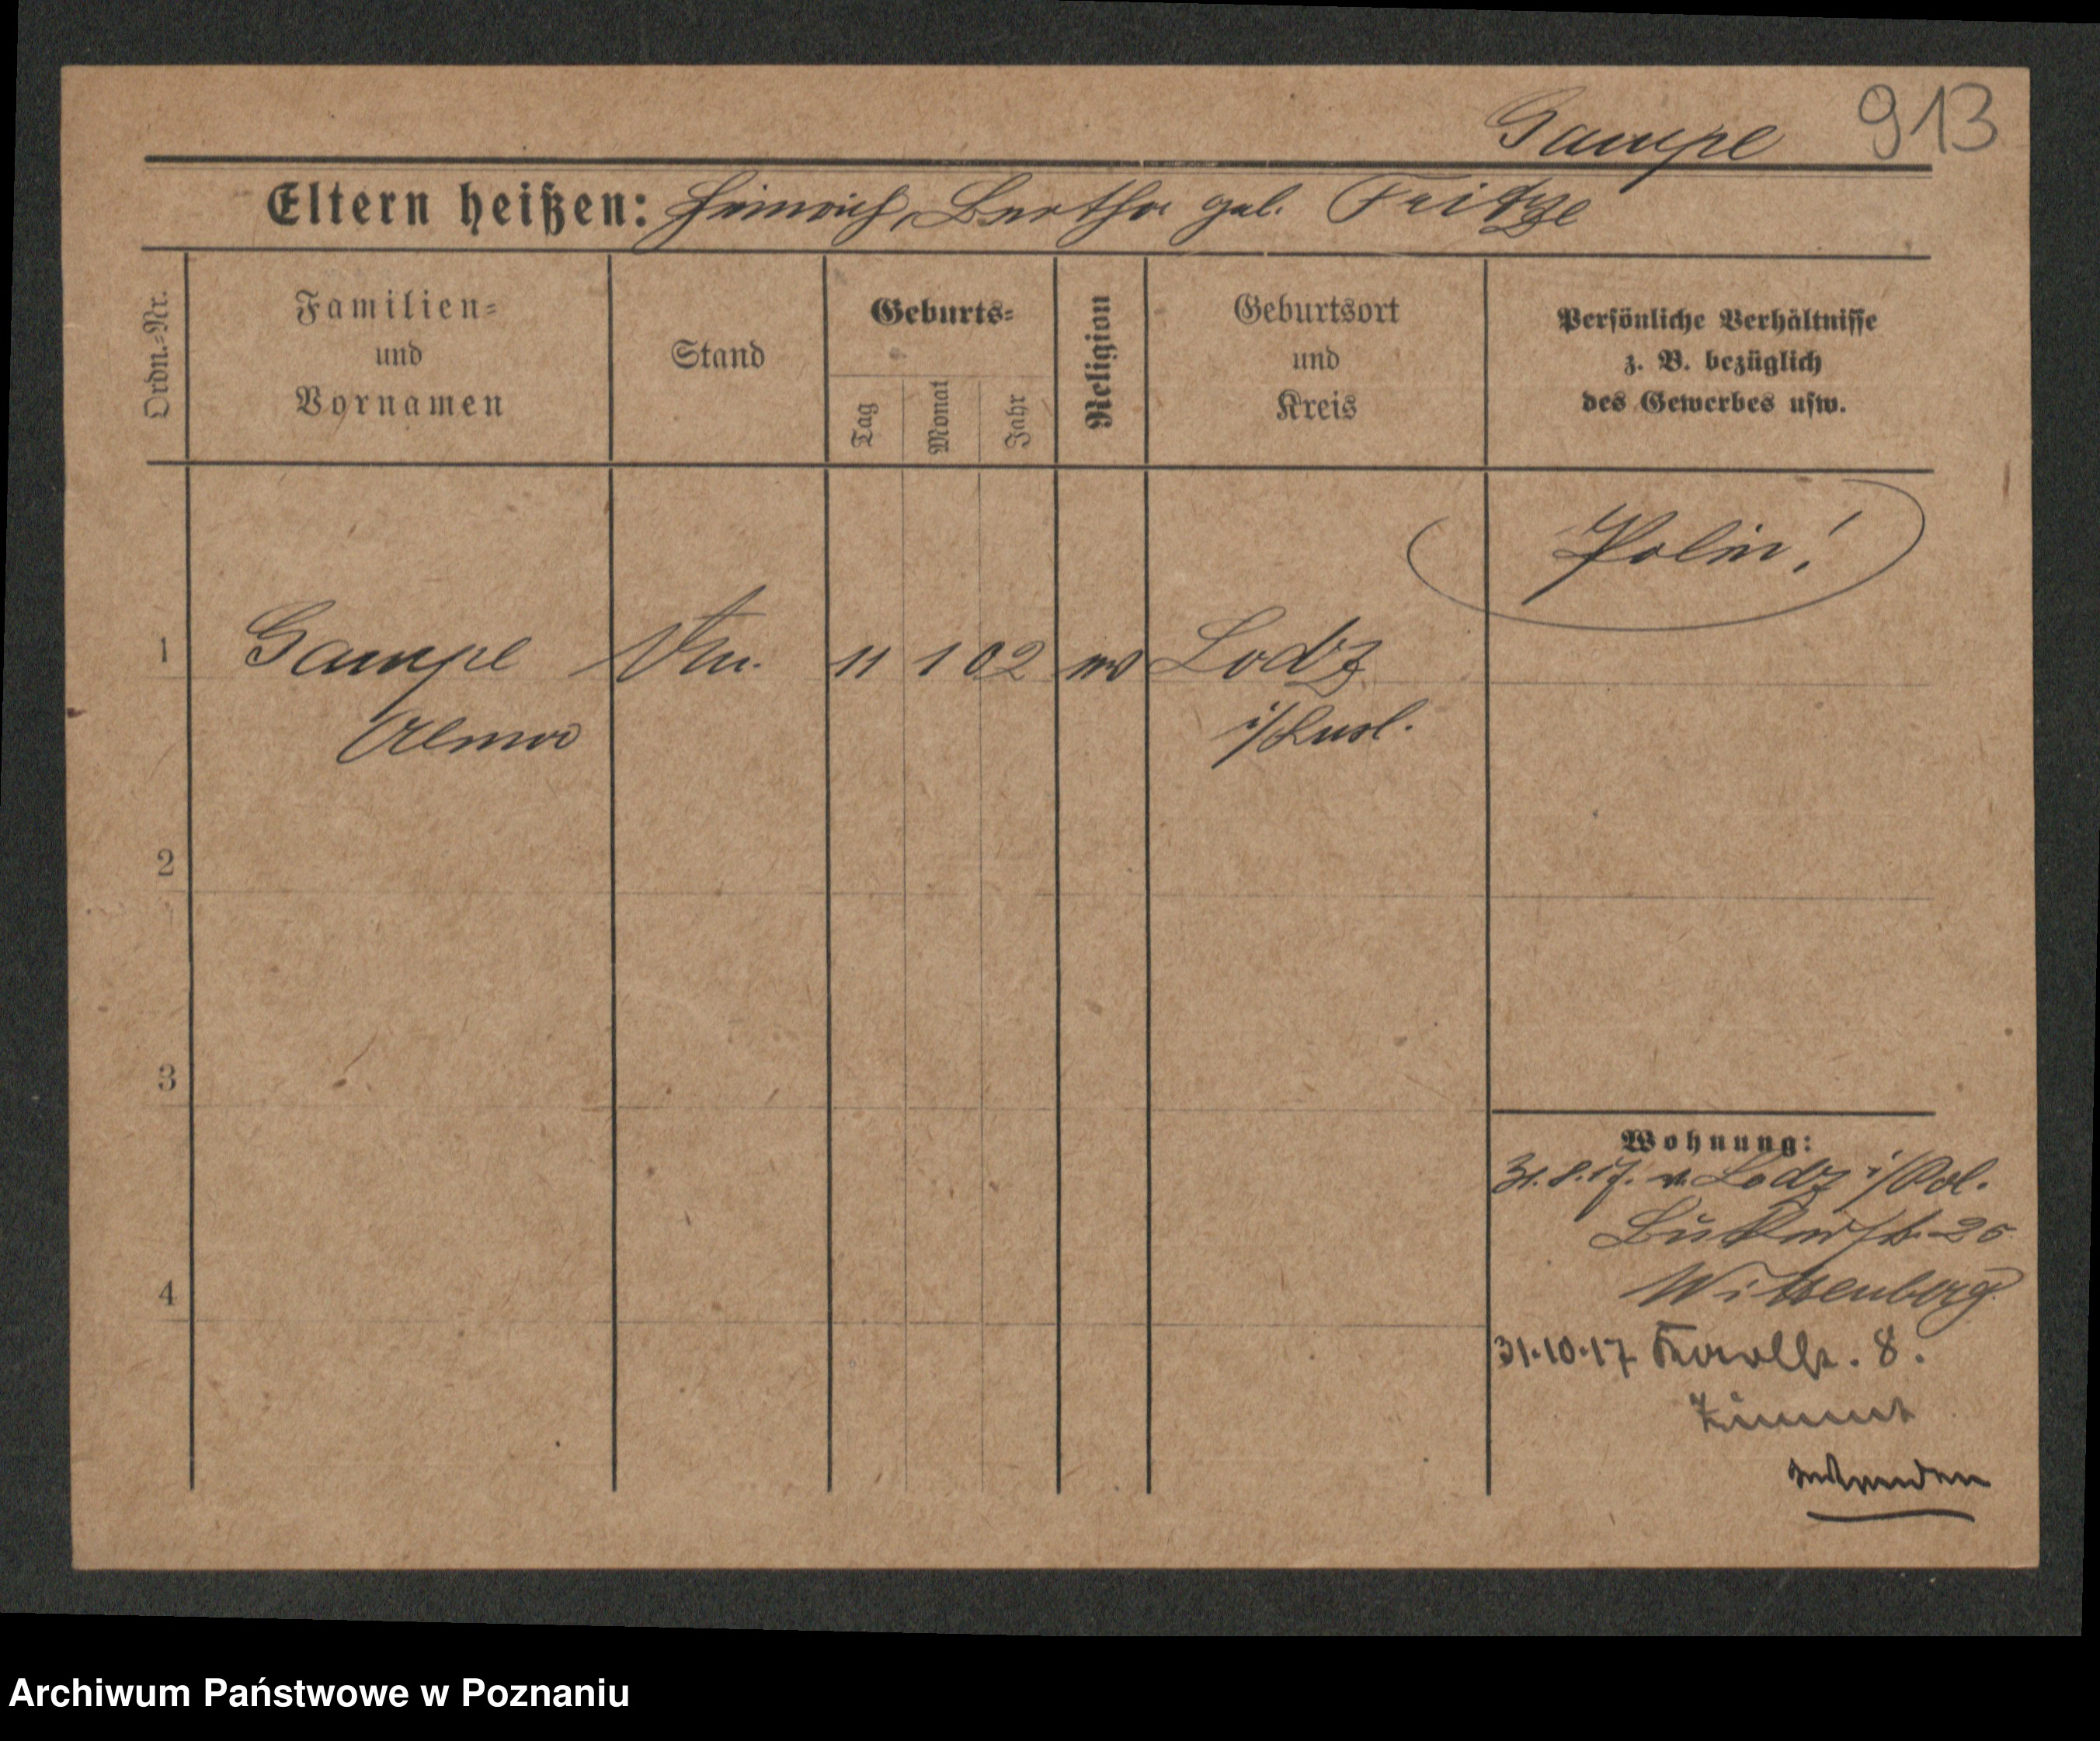 Gampe 913
Eltern heißen: Heinrich, Bertha geb. Fritze
Ordn.-Nr.
Familien-
und
Vornamen
Stand
Geburts-
Tag
Monat
Jahr
Religion
Geburtsort
und
Kreis
Persönliche Verhältnisse
z. B. bezüglich
des Gewerbes usw.
Polin!
1 Gampe 11 1 02 Lodz
i/Russl.
2
3
Wohnung:
31.8.17. v. Lodz i/Pol.
4
Wittenberg
31.10.17 8.
wenden
Archiwum Państwowe w Poznaniu